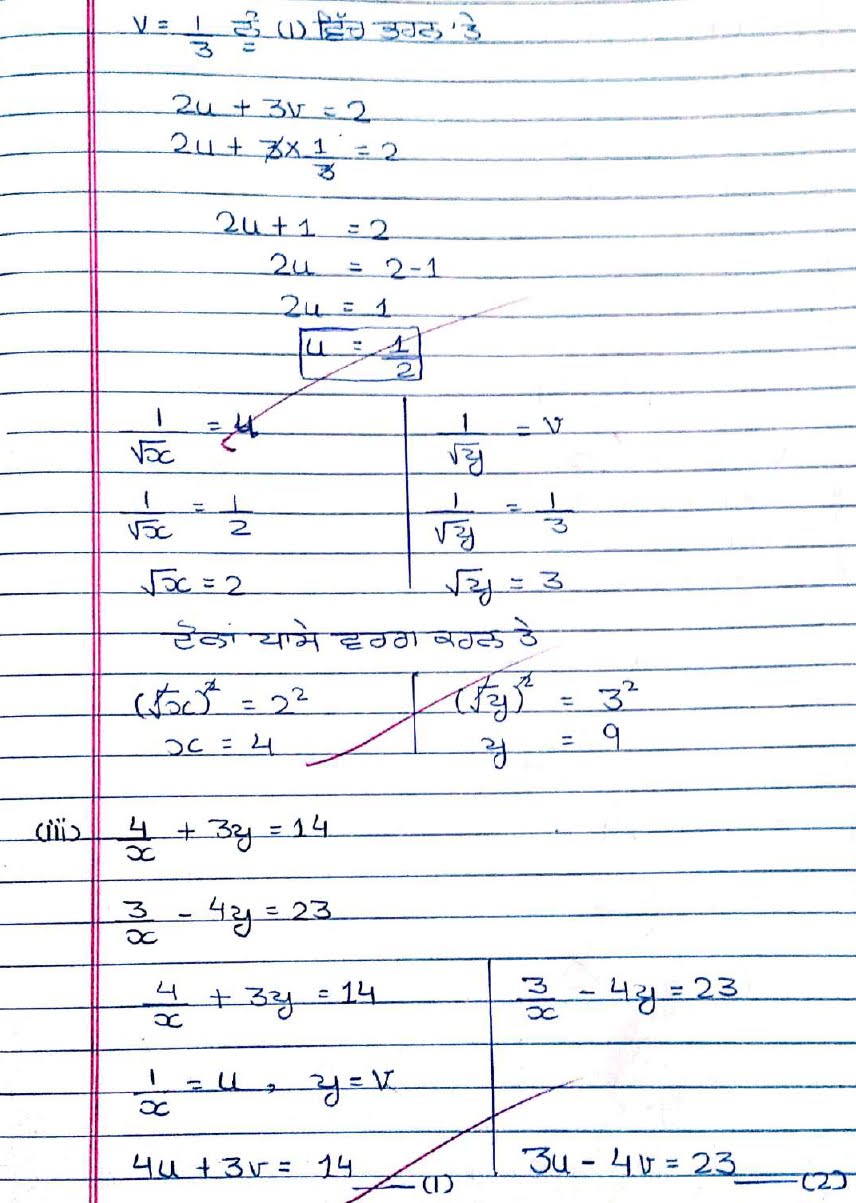 v = 1/3 ਨੂੰ (1) ਵਿੱਚ ਭਰਨ 'ਤੇ
2u + 3v = 2
2u + 3 × 1/3 = 2
2u + 1 = 2
2u = 2 - 1
2u = 1
u = 1/2
1/√x = u | 1/√y = v
1/√x = 1/2 | 1/√y = 1/3
√x = 2 | √y = 3
ਦੋਨਾਂ ਪਾਸੇ ਵਰਗ ਕਰਨ ਤੇ
(√x)² = 2² | (√y)² = 3²
x = 4 | y = 9
(iii) 4/x + 3y = 14
3/x - 4y = 23
4/x + 3y = 14 | 3/x - 4y = 23
1/x = u, y = v
4u + 3v = 14 —(1) | 3u - 4v = 23 —(2)